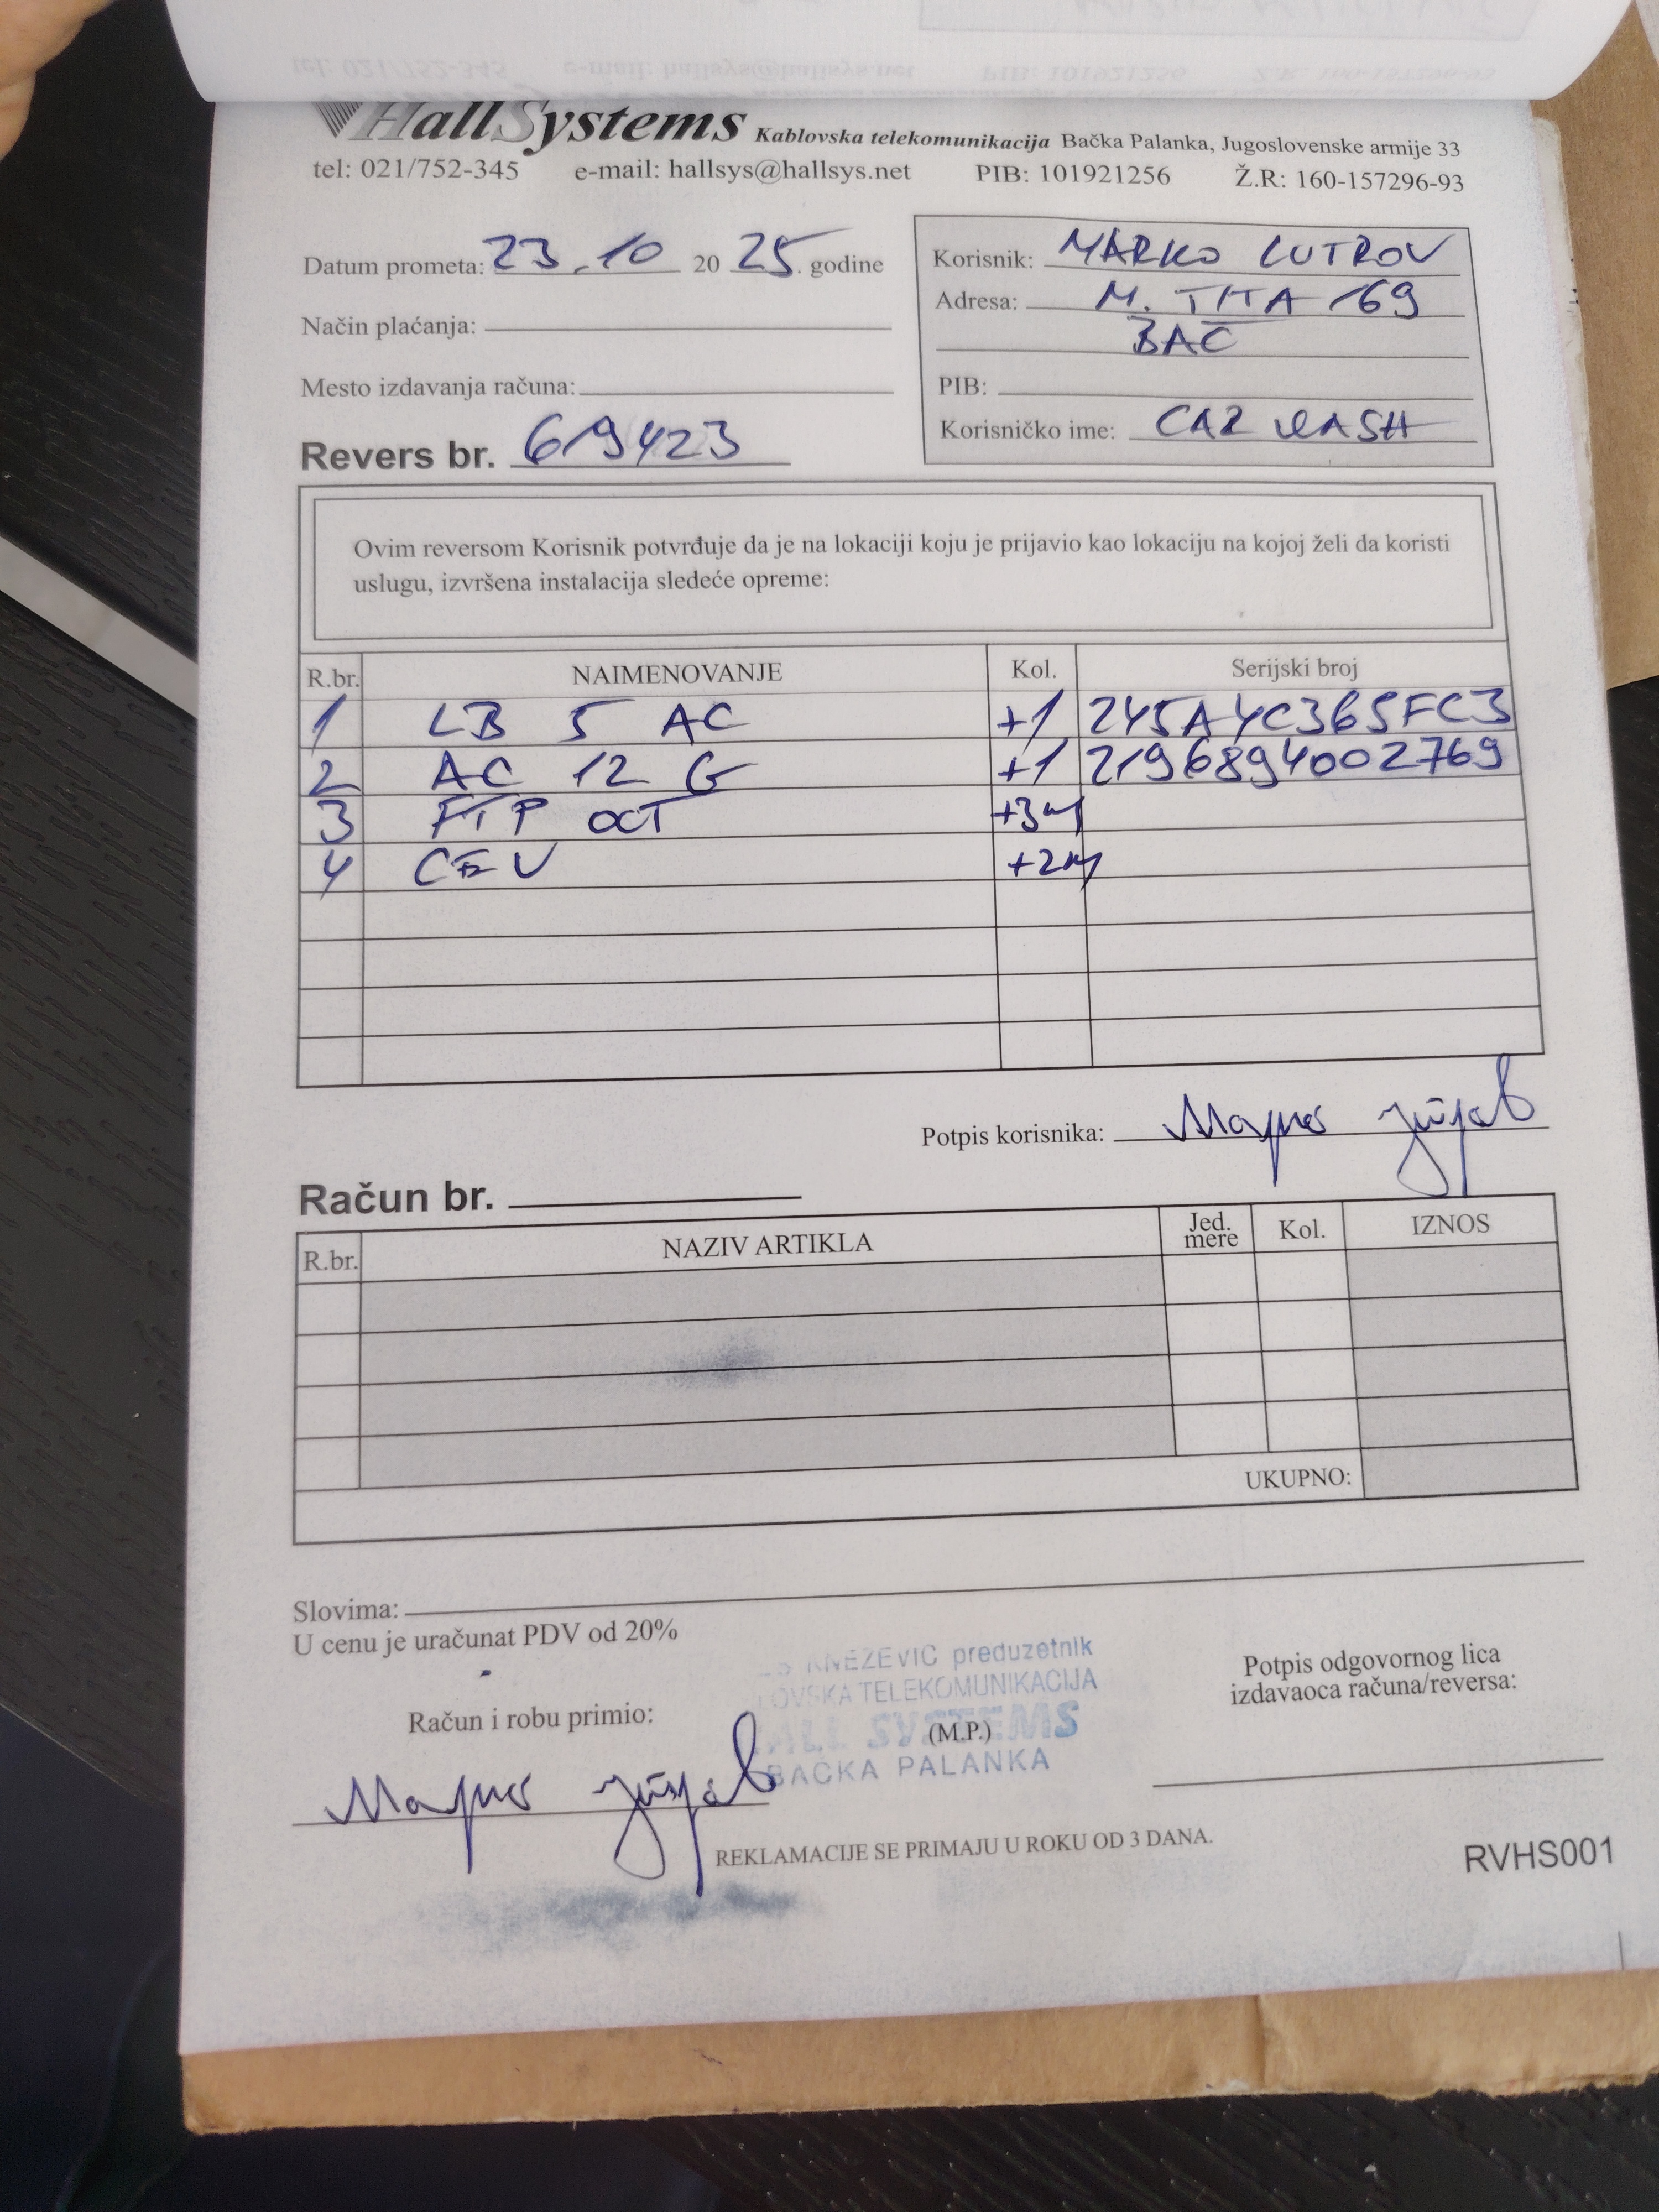 HallSystems Kablovska telekomunikacija Bačka Palanka, Jugoslovenske armije 33
tel: 021/752-345 e-mail: hallsys@hallsys.net PIB: 101921256 Ž.R: 160-157296-93
Datum prometa: 23.10 20 25. godine
Način plaćanja:
Mesto izdavanja računa:
Revers br. 619423
Korisnik: MARKO LUTROV
Adresa: M. TITA 169
BAČ
PIB:
Korisničko ime: CAR WASH
Ovim reversom Korisnik potvrđuje da je na lokaciji koju je prijavio kao lokaciju na kojoj želi da koristi
uslugu, izvršena instalacija sledeće opreme:
R.br. NAIMENOVANJE Kol. Serijski broj
1 LB 5 AC +1 245A4C365FC3
2 AC 12 G +1 2196894002769
3 FTP OCT +3m
4 CEV +2m
Potpis korisnika: Марко
Račun br.
R.br. NAZIV ARTIKLA Jed. mere Kol. IZNOS
UKUPNO:
Slovima:
U cenu je uračunat PDV od 20%
Račun i robu primio:
Марко
KNEZEVIC preduzetnik
OVSKA TELEKOMUNIKACIJA
ALL SYSTEMS
(M.P.)
BAČKA PALANKA
Potpis odgovornog lica
izdavaoca računa/reversa:
REKLAMACIJE SE PRIMAJU U ROKU OD 3 DANA.
RVHS001